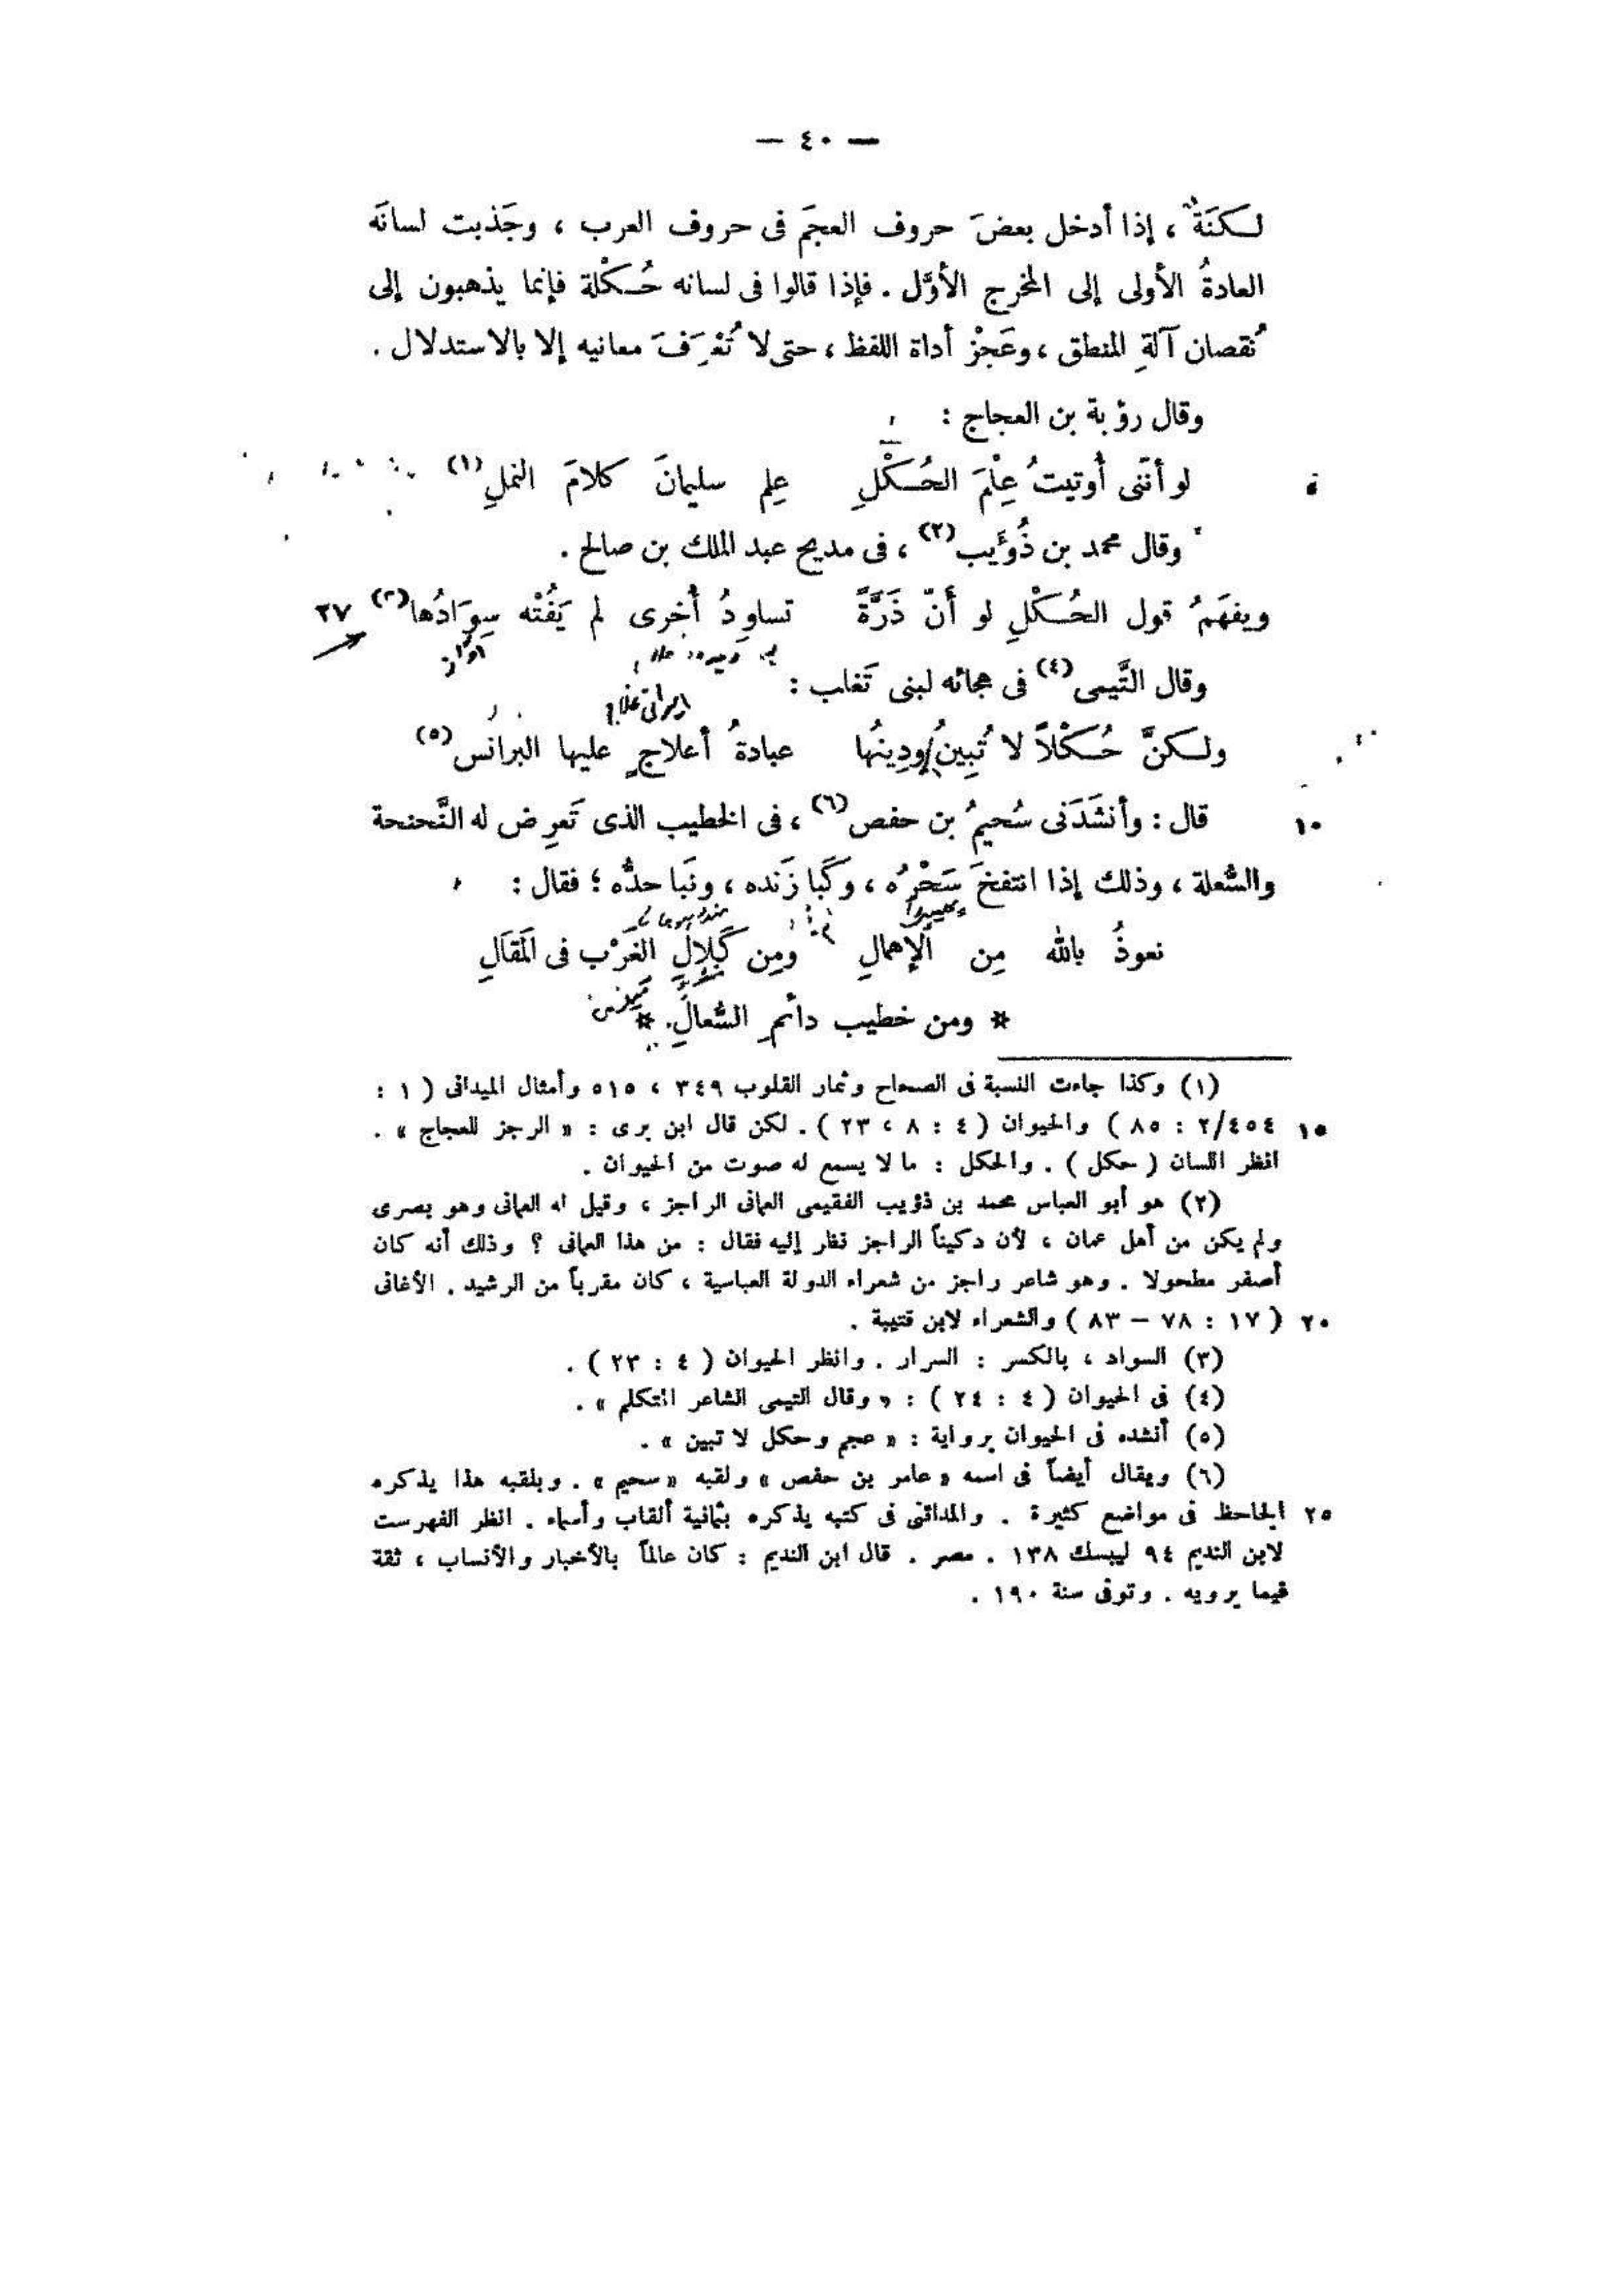 — ٤٠ —
لكنَةٌ ، إذا أدخل بعضَ حروف العجَم فى حروف العرب ، وجَذبت لسانَه
العادةُ الأولى إلى المخرج الأوَّل . فإذا قالوا فى لسانه حُكْلة فإنما يذهبون إلى
نُقصان آلةِ المنطق ، وعَجْزِ أداة اللفظ ، حتى لا تُعْرَفَ معانيه إلا بالاستدلال .
وقال رؤبة بن العجاج :
٥ لو أنَّنى أُوتيتُ عِلْمَ الحُكْلِ علِم سليمانَ كلامَ النملِ (١)
وقال محمد بن ذُؤَيب (٢) ، فى مديح عبد الملك بن صالح .
ويفهَمُ قول الحُكْلِ لو أَنّ ذَرَّةً تساوِدُ أُخرى لم يَفُتْه سِوَادُها (٣) ٢٧
وقال التَّيمى (٤) فى هجائه لبنى تَغلب :
ولكنَّ حُكْلاً لا تُبِينُ ودِينُها عبادةُ أعلاجٍ عليها البرانسُ (٥)
١٠ قال : وأنشَدَنى سُحيمُ بن حفص (٦) ، فى الخطيب الذى تَعرِض له النَّحنحة
والسُّعلة ، وذلك إذا انتفخَ سَحْرُه ، وكَبا زَنده ، ونَبا حدُّه ؛ فقال :
نعوذُ بالله مِن الإهمالِ ومِن كَلالِ الغَرْب فى المَقالِ
* ومن خطيب دائم السُّعالِ *
(١) وكذا جاءت النسبة فى الصحاح وثمار القلوب ٣٤٩ ، ٥١٥ وأمثال الميدانى ( ١ :
١٥ ٢/٤٥٤ : ٨٥ ) والحيوان ( ٤ : ٨ ، ٢٣ ) . لكن قال ابن برى : « الرجز للعجاج » .
انظر اللسان ( حكل ) . والحكل : ما لا يسمع له صوت من الحيوان .
(٢) هو أبو العباس محمد بن ذؤيب الفقيمى العمانى الراجز ، وقيل له العمانى وهو بصرى
ولم يكن من أهل عمان ، لأن دكيناً الراجز نظر إليه فقال : من هذا العمانى ؟ وذلك أنه كان
أصفر مطحولا . وهو شاعر راجز من شعراء الدولة العباسية ، كان مقرباً من الرشيد . الأغانى
٢٠ ( ١٧ : ٧٨ – ٨٣ ) والشعراء لابن قتيبة .
(٣) السواد ، بالكسر : السرار . وانظر الحيوان ( ٤ : ٢٣ ) .
(٤) فى الحيوان ( ٤ : ٢٤ ) : « وقال التيمى الشاعر المتكلم » .
(٥) أنشده فى الحيوان برواية : « عجم وحكل لا تبين » .
(٦) ويقال أيضاً فى اسمه « عامر بن حفص » ولقبه « سحيم » . وبلقبه هذا يذكره
٢٥ الجاحظ فى مواضع كثيرة . والمدائنى فى كتبه يذكره بثمانية ألقاب وأسماء . انظر الفهرست
لابن النديم ٩٤ ليبسك ١٣٨ . مصر . قال ابن النديم : كان عالماً بالأخبار والأنساب ، ثقة
فيما يرويه . وتوفى سنة ١٩٠ .